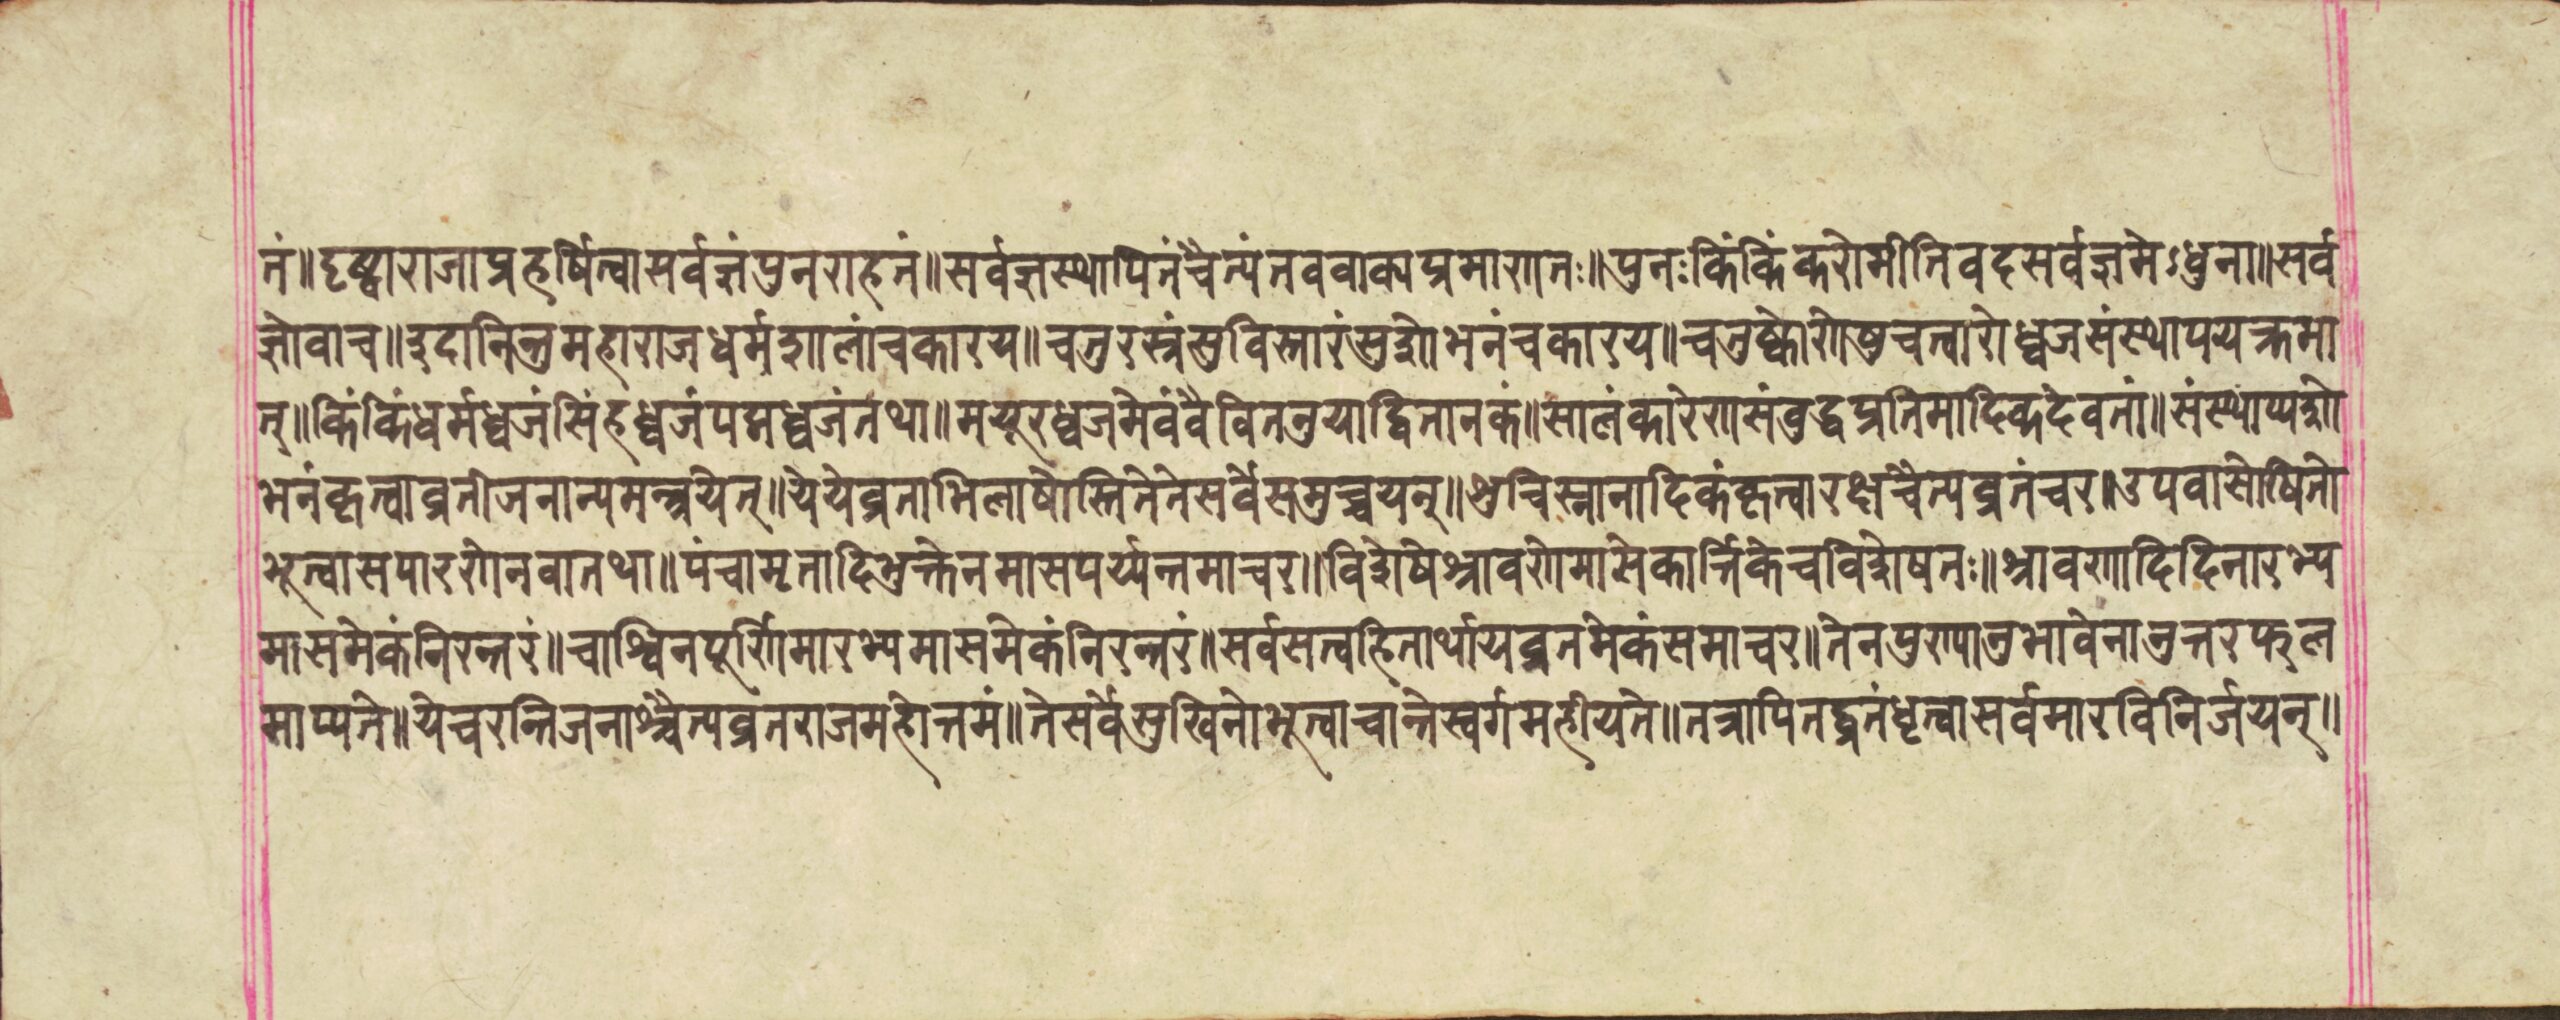 तं॥दृष्ट्वाराजाप्रहर्षित्वासर्वज्ञंपुनराहतं॥सर्वज्ञस्थापितंचैत्यंतववाक्यप्रमाणतः॥पुनःकिंकिंकरोमीतिवदसर्वज्ञमेऽधुना॥सर्व
ज्ञोवाच॥इदानिन्तुमहाराजधर्मशालांचकारय॥चतुरस्त्रंसुविस्तारंसुशोभनंचकारय॥चतुष्कोणेषुचत्वारोध्वजसंस्थापयत्क्तमा
त्॥किंकिंधर्मध्वजंसिंहध्वजंपद्मध्वजंतथा॥मयूरध्वजमेवंवैवितनुयाद्वितानकं॥सालंकारेणसंवुद्धप्रतिमादिकदेवतां॥संस्थाप्यशो
भनंकृत्वाव्रतीजनान्यमन्त्रयेत्॥येयेव्रताभिलाषास्तितेतेसर्वेसमुच्चयन्॥शुचिस्नानादिकंकृत्वारक्षचैत्यव्रतंचर॥उपवासोषितो
भूत्वासपारणेनवातथा॥पंचामृतादिभुक्तेनमासपर्य्यन्तमाचर॥विशेषेश्रावणेमासेकार्त्तिकेचविशेषतः॥श्रावणादिदिनारभ्य
मासमेकंनिरन्तरं॥चाश्विनपूर्णिमारभ्यमासमेकंनिरन्तरं॥सर्वसत्वहितार्थायव्रतमेकंसमाचर॥तेनपुण्यानुभावेनानुत्तरफल
माप्यते॥येचरन्तिजनाश्चैत्यव्रतराजमहोत्तमं॥तेसर्वेसुखिनोभूत्वाचान्तेस्वर्गमहीयते॥तत्रापितद्व्रतंधृत्वासर्वमारविनिर्जयन्॥